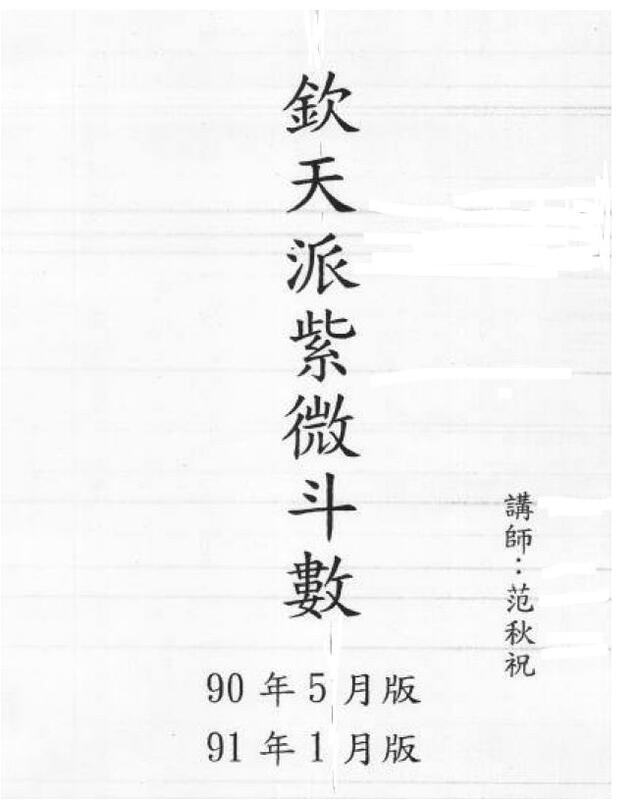 欽天派紫微斗數
講師：范秋祝
90 年 5 月版
91 年 1 月版